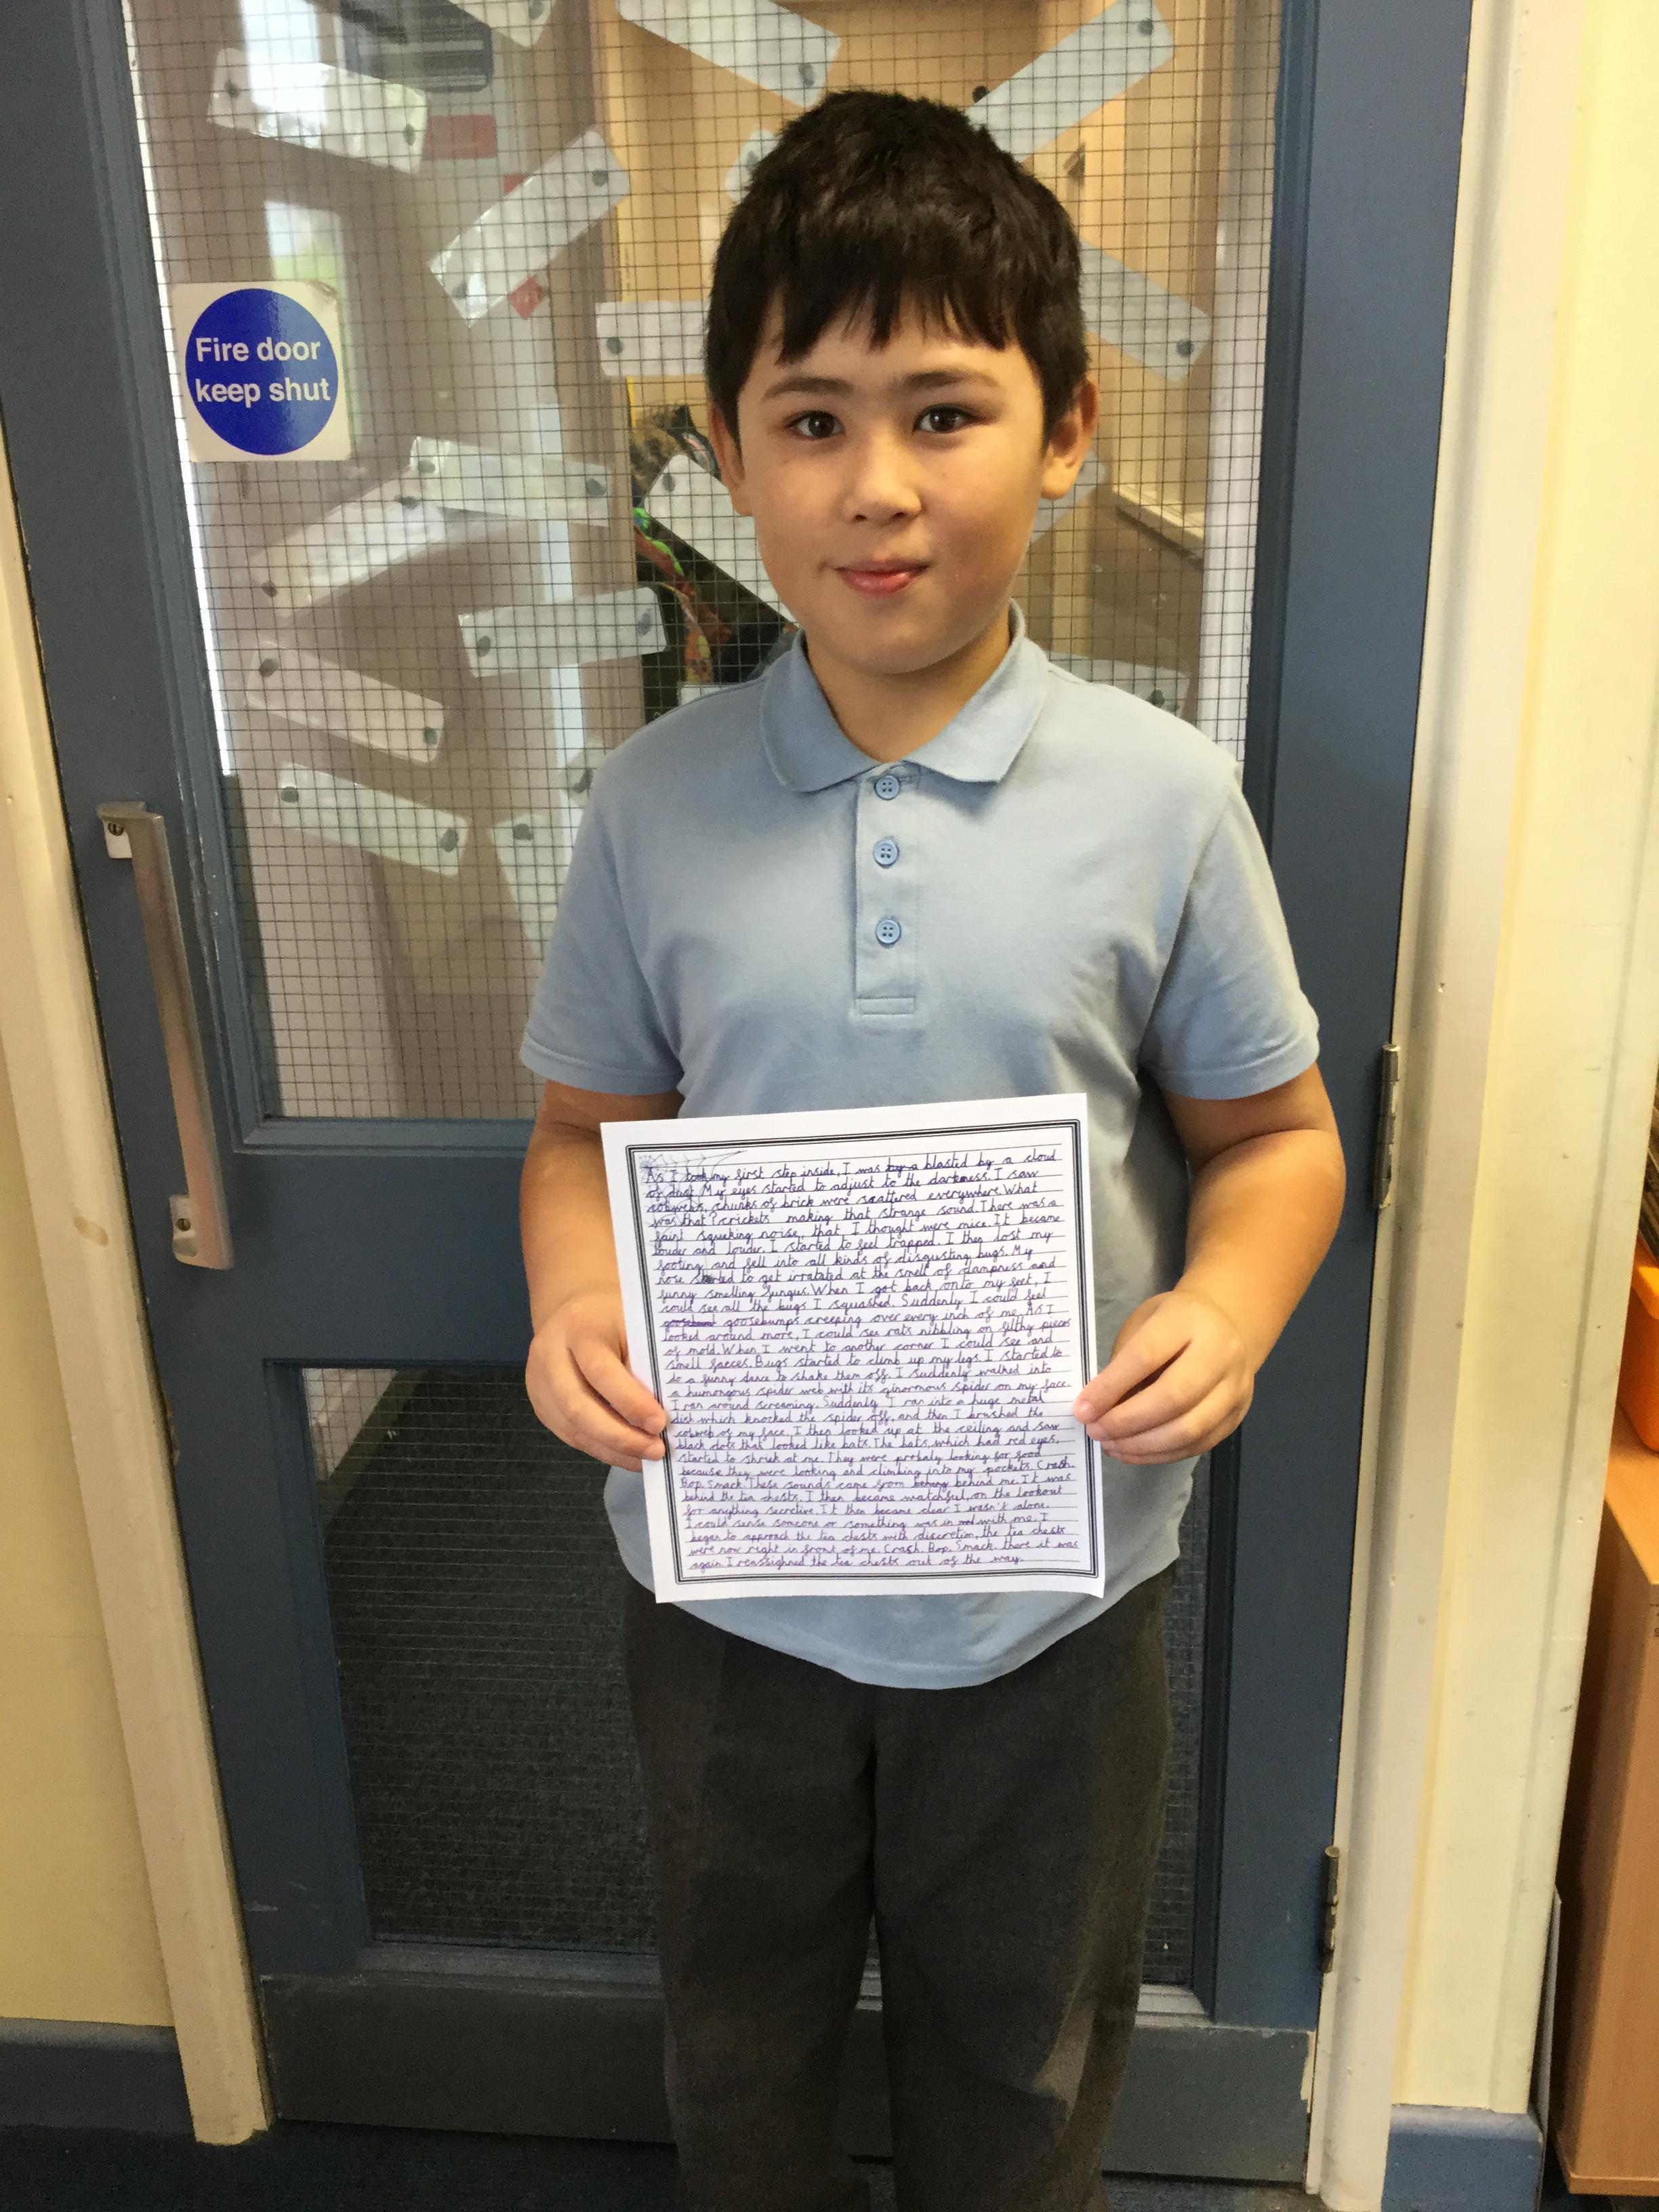 Fire door
keep shut
As I took my first step inside, I was by a blasted by a cloud
of dust. My eyes started to adjust to the darkness. I saw
cobwebs, chunks of brick were scattered everywhere. What
was that? crickets making that strange sound. There was a
faint squeking noise, that I thought were mice. It became
louder and louder. I started to feel trapped. I then lost my
footing and fell into all kinds of disgusting bugs. My
nose started to get irratated at the smell of dampness and
funny smelling fungus. When I got back onto my feet, I
could see all the bugs I squashed. Suddenly I could feel
goosebumps creeping over every inch of me. As I
looked around more, I could see rats nibbling on filthy pieces
of mold. When I went to another corner I could see and
smell faeces. Bugs started to climb up my legs. I started to
do a funny dance to shake them off. I suddenly walked into
a humongous spider web with its ginormous spider on my face.
I ran around screaming. Suddenly I ran into a huge metal
dish which knocked the spider off, and then I brushed the
cobweb of my face. I then looked up at the ceiling and saw
black dots that looked like bats. The bats, which had red eyes,
started to shriek at me. They were probaly looking for food
because they were looking and climbing into my pockets. Crash.
Bop. Smack. These sounds came from behing behind me. It was
behind the tea chests. I then became watchful, on the lookout
for anything secretive. It then became clear I wasn't alone.
I could sense someone or something was in with me. I
began to approach the tea chests with discretion, the tea chests
were now right in front of me. Crash. Bop. Smack. there it was
again. I reassighned the tea chests out of the way.